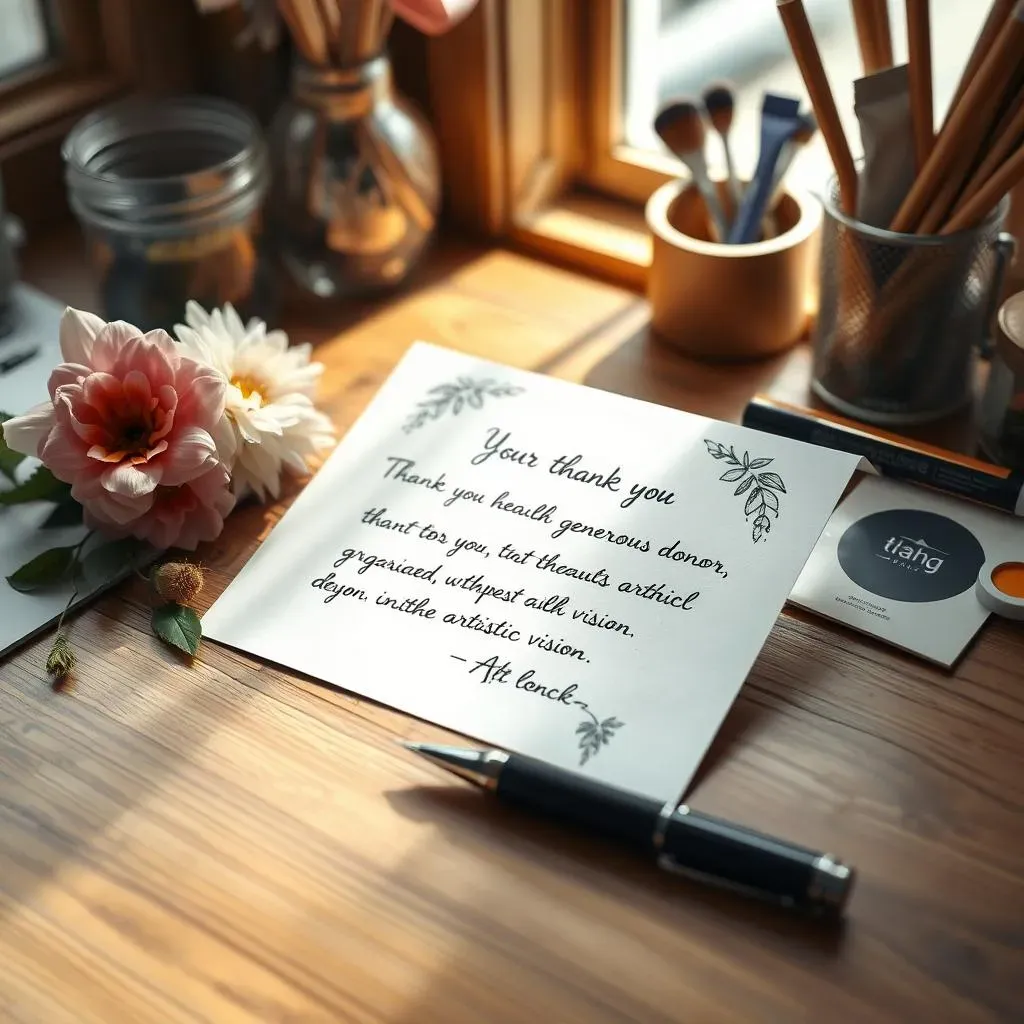 Your thank you
Thank you healh generous donor,
thant tos you, tint theauls arthicl
grgariaed, withpest aılh vision,
deyon, inithe artistic vision.
– Aft lonck
tlahg